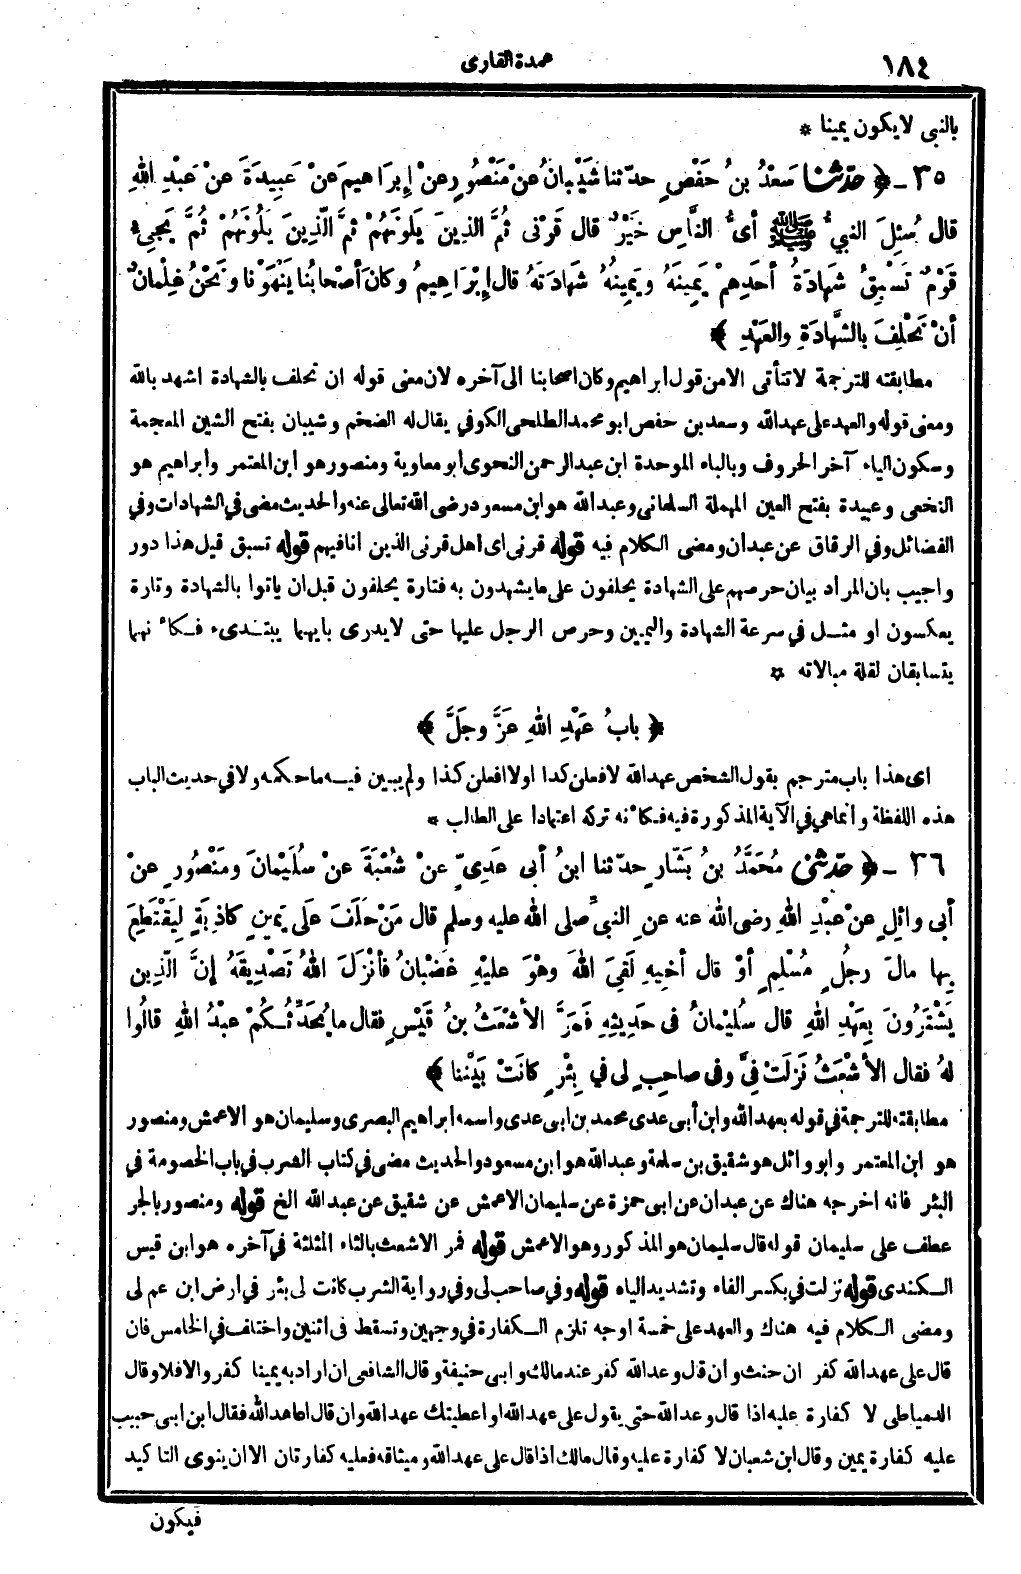 ١٨٤
عمدة القارى
بالنبى لا يكون يمينا *
٣٥ - ﴿ حَدَّثَنَا سَعْدُ بنُ حَفْصٍ حدّثنا شَيْبَانُ عَنْ مَنْصُورٍ عنْ إِبرَاهِيمَ عَنْ عَبِيدَةَ عنْ عَبْدِ اللهِ
قال سُئِلَ النبيُّ ﷺ أىُّ النَّاسِ خَيْرٌ قال قَرْنى ثُمَّ الذينَ يَلُونَهُمْ ثمَّ الَّذِينَ يَلُونَهُمْ ثُمَّ يَجِىءُ
قَوْمٌ تَسْبِقُ شَهَادَةُ أحَدِهِمْ يَمِينَهُ ويَمِينُهُ شهادَتَهُ قال إِبْرَاهِيمُ وكان أصْحابُنا يَنْهَوْنا ونَحْنُ غِلْمانٌ
أنْ نَحْلِفَ بالشَّهادَةِ والعَهْدِ ﴾
مطابقته للترجمة لاتتأتى الامن قول ابراهيم وكان اصحابنا الى آخره لان معنى قوله ان نحلف بالشهادة اشهد بالله
ومعنى قوله والعهد على عهد الله وسعد بن حفص ابو محمد الطلحى الكوفي يقال له الضخم وشيبان بفتح الشين المعجمة
وسكون الياء آخر الحروف وبالباء الموحدة ابن عبد الرحمن النحوى ابو معاوية ومنصور هو ابن المعتمر وابراهيم هو
النخعى وعبيدة بفتح العين المهملة السلمانى وعبد الله هو ابن مسعود رضى الله تعالى عنه والحديث مضى في الشهادات وفي
الفضائل وفي الرقاق عن عبدان ومضى الكلام فيه قوله قرنى اى اهل قرنى الذين انا فيهم قوله تسبق قيل هذا دور
واجيب بان المراد بيان حرصهم على الشهادة يحلفون على ما يشهدون به فتارة يحلفون قبل ان ياتوا بالشهادة وتارة
يعكسون او مثل في سرعة الشهادة واليمين وحرص الرجل عليها حتى لا يدرى بايهما يبتدىء فكأنهما
يتسابقان لقلة مبالاته *
﴿ بابُ عَهْدِ اللهِ عَزَّ وجَلَّ ﴾
اى هذا باب مترجم بقول الشخص عهد الله لافعلن كدا اولا افعلن كذا ولم يبين فيه ما حكمه ولا في حديث الباب
هذه اللفظة وانما هي في الآية المذكورة فيه فكأنه تركه اعتمادا على الطالب *
٣٦ - ﴿ حدّثنى مُحَمَّدُ بنُ بَشَّارٍ حدّثنا ابنُ أبى عَدِىٍّ عنْ شُعْبَةَ عنْ سُلَيْمانَ ومَنْصُورٍ عنْ
أبى وائِلٍ عنْ عَبْدِ اللهِ رضى الله عنه عن النبىِّ صلى الله عليه وسلم قال مَنْ حَلَفَ علَى يَمينٍ كاذِبَةٍ لِيَقْتَطِعَ
بِها مالَ رجُلٍ مُسْلِمٍ أوْ قال أخِيهِ لَقِىَ اللهَ وهْوَ عليْهِ غَضْبانُ فأنْزَلَ اللهُ تَصْدِيقَهُ إنَّ الَّذِين
يَشْتَرُونَ بِعَهْدِ اللهِ قال سُلَيْمانُ فى حَدِيثِهِ فَمَرَّ الأشْعَثُ بنُ قَيْسٍ فقال ما يُحَدِّثُكُمْ عبْدُ اللهِ قالُوا
لهُ فقال الأشْعَثُ نَزَلَتْ فِىَّ وفى صاحِبٍ لى في بِئْرٍ كانَتْ بَيْنَنا ﴾
مطابقته للترجمة في قوله بعهد الله وابن أبى عدى محمد بن ابى عدى واسمه ابراهيم البصرى وسليمان هو الاعمش ومنصور
هو ابن المعتمر وابو وائل هو شقيق بن سلمة وعبد الله هو ابن مسعود والحديث مضى في كتاب الشرب في باب الخصومة في
البئر فانه اخرجه هناك عن عبدان عن ابى حمزة عن سليمان الاعمش عن شقيق عن عبد الله الخ قوله ومنصور بالجر
عطف على سليمان قوله قال سليمان هو المذكور وهو الاعمش قوله فمر الاشعث بالثاء المثلثة في آخره هو ابن قيس
الكندى قوله نزلت في بكسر الفاء وتشديد الياء قوله وفي صاحب لى وفي رواية الشرب كانت لى بئر في ارض ابن عم لى
ومضى الكلام فيه هناك والعهد على خمسة اوجه تلزم الكفارة في وجهين وتسقط فى اثنين واختلف في الخامس فان
قال على عهد الله كفر ان حنث وان قال وعد الله كفر عند مالك وابى حنيفة وقال الشافعى ان اراد به يمينا كفر والافلا وقال
الدمياطى لا كفارة عليه اذا قال وعد الله حتى يقول على عهد الله او اعطيتك عهد الله وان قال اعاهد الله فقال ابن ابى حبيب
عليه كفارة يمين وقال ابن شعبان لا كفارة عليه وقال مالك اذا قال على عهد الله وميثاقه فعليه كفارتان الا ان ينوى التاكيد
فيكون